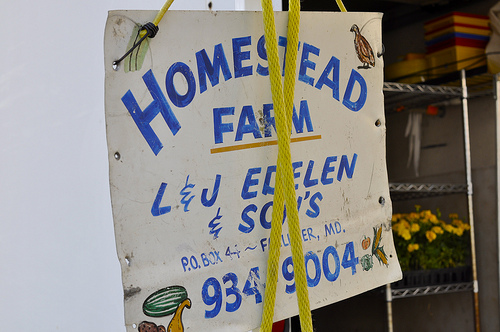 HOMESTEAD
FARM
L & J EDELEN
& SON'S
P.O. BOX MD.
934 9004